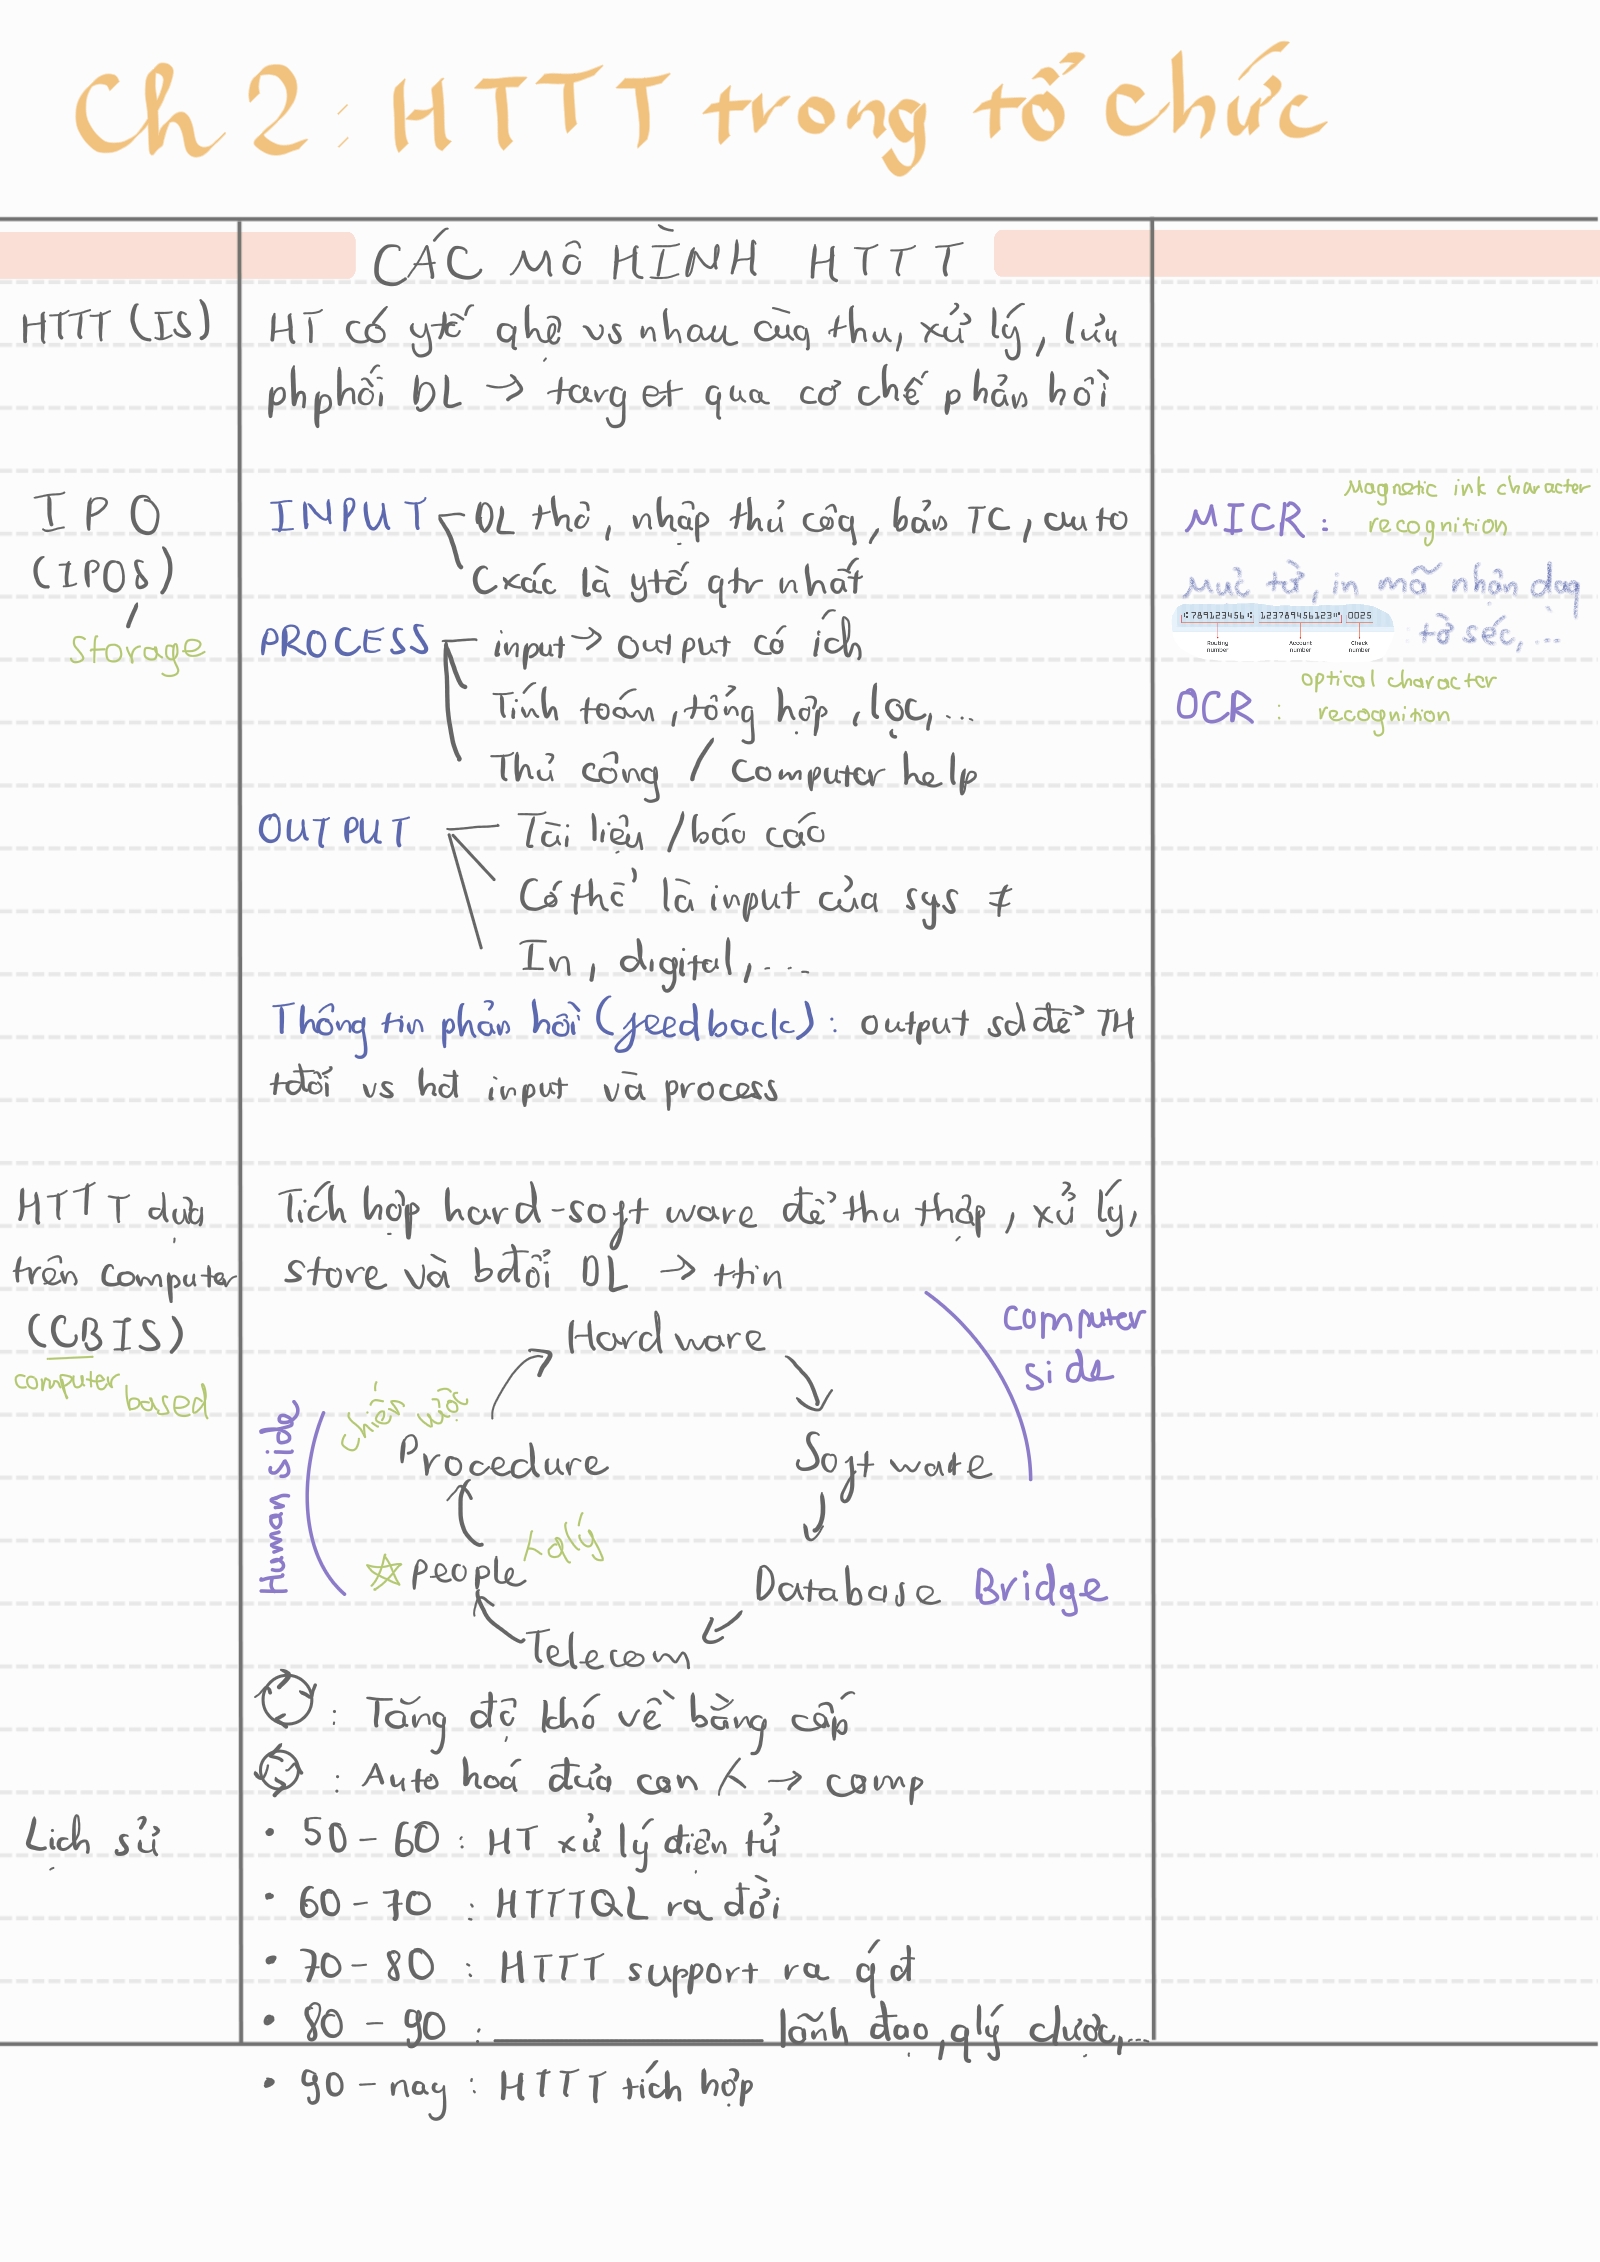 Ch 2: HTTT trong tổ chức
CÁC MÔ HÌNH HTTT
HTTT (IS)
HT có ytố qhệ vs nhau cùg thu, xử lý, lưu
phphối DL → target qua cơ chế phản hồi
IPO
(IPOS)
Storage
INPUT
DL thô, nhập thủ côg, bán TC, auto
Cxác là ytố qtr nhất
PROCESS
input → output có ích
Tính toán, tổng hợp, lọc,...
Thủ công / Computer help
OUTPUT
Tài liệu / báo cáo
Có thể là input của sys ≠
In, digital,....
Thông tin phản hồi (feedback): output sd để TH
tđổi vs hđ input và process
MICR: Magnetic ink character
recognition
Mực từ, in mã nhận dạg
tờ séc,...
⑆789123456⑆ 123789456123⑈ 0025
Routing number
Account number
Check number
OCR: optical character
recognition
HTTT dựa
trên computer
(CBIS)
computer based
Tích hợp hard-software để thu thập, xử lý,
store và bđổi DL → ttin
Hardware
Computer side
Software
Database
Bridge
Telecom
☆ people
qlý
Procedure
chiến lược
Human side
: Tăng độ khó về bằng cấp
: Auto hoá đưa con → comp
Lịch sử
• 50 - 60 : HT xử lý điện tử
• 60 - 70 : HTTTQL ra đời
• 70 - 80 : HTTT support ra qđ
• 80 - 90 : lãnh đạo, qlý clược,...
• 90 - nay : HTTT tích hợp